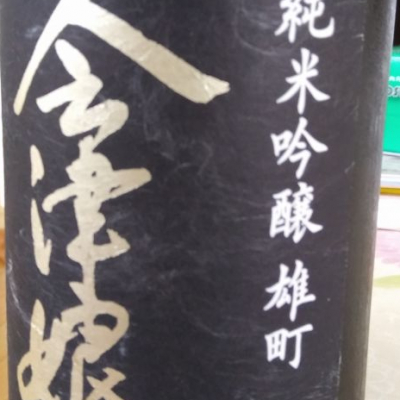 純米吟醸 雄町
会津娘